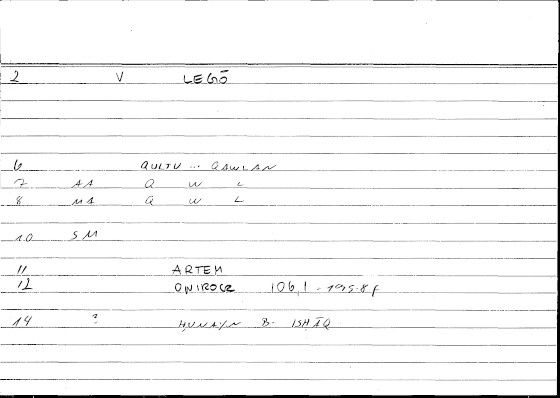 2 V LEGŌ
6 QULTU ... QAWLAN
7 AA Q W L
8 MA Q W L
10 SM
11 ARTEM
12 ONIROCR 106,1 - 195.8 f
14 ? ḤUNAYN B. ISḤĀQ